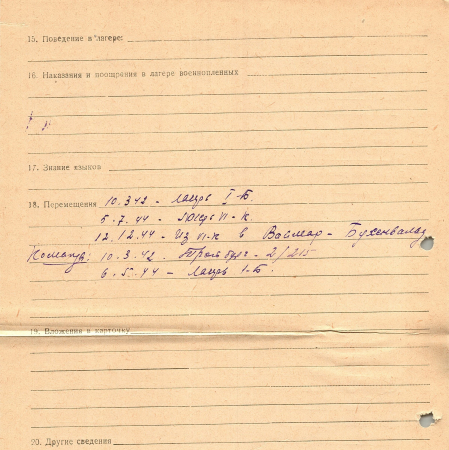 15. Поведение в лагере:
16. Наказания и поощрения в лагере военнопленных
17. Знание языков
18. Перемещения 10.3.42 - лагерь I-Б.
5.7.44 - лагерь II-К.
12.12.44 - Из II-К в Ваймар - Бухенвальд
10.3.42. 2/215
6.5.44 - Лагерь I-Б.
19. Вложения в карточку
20. Другие сведения